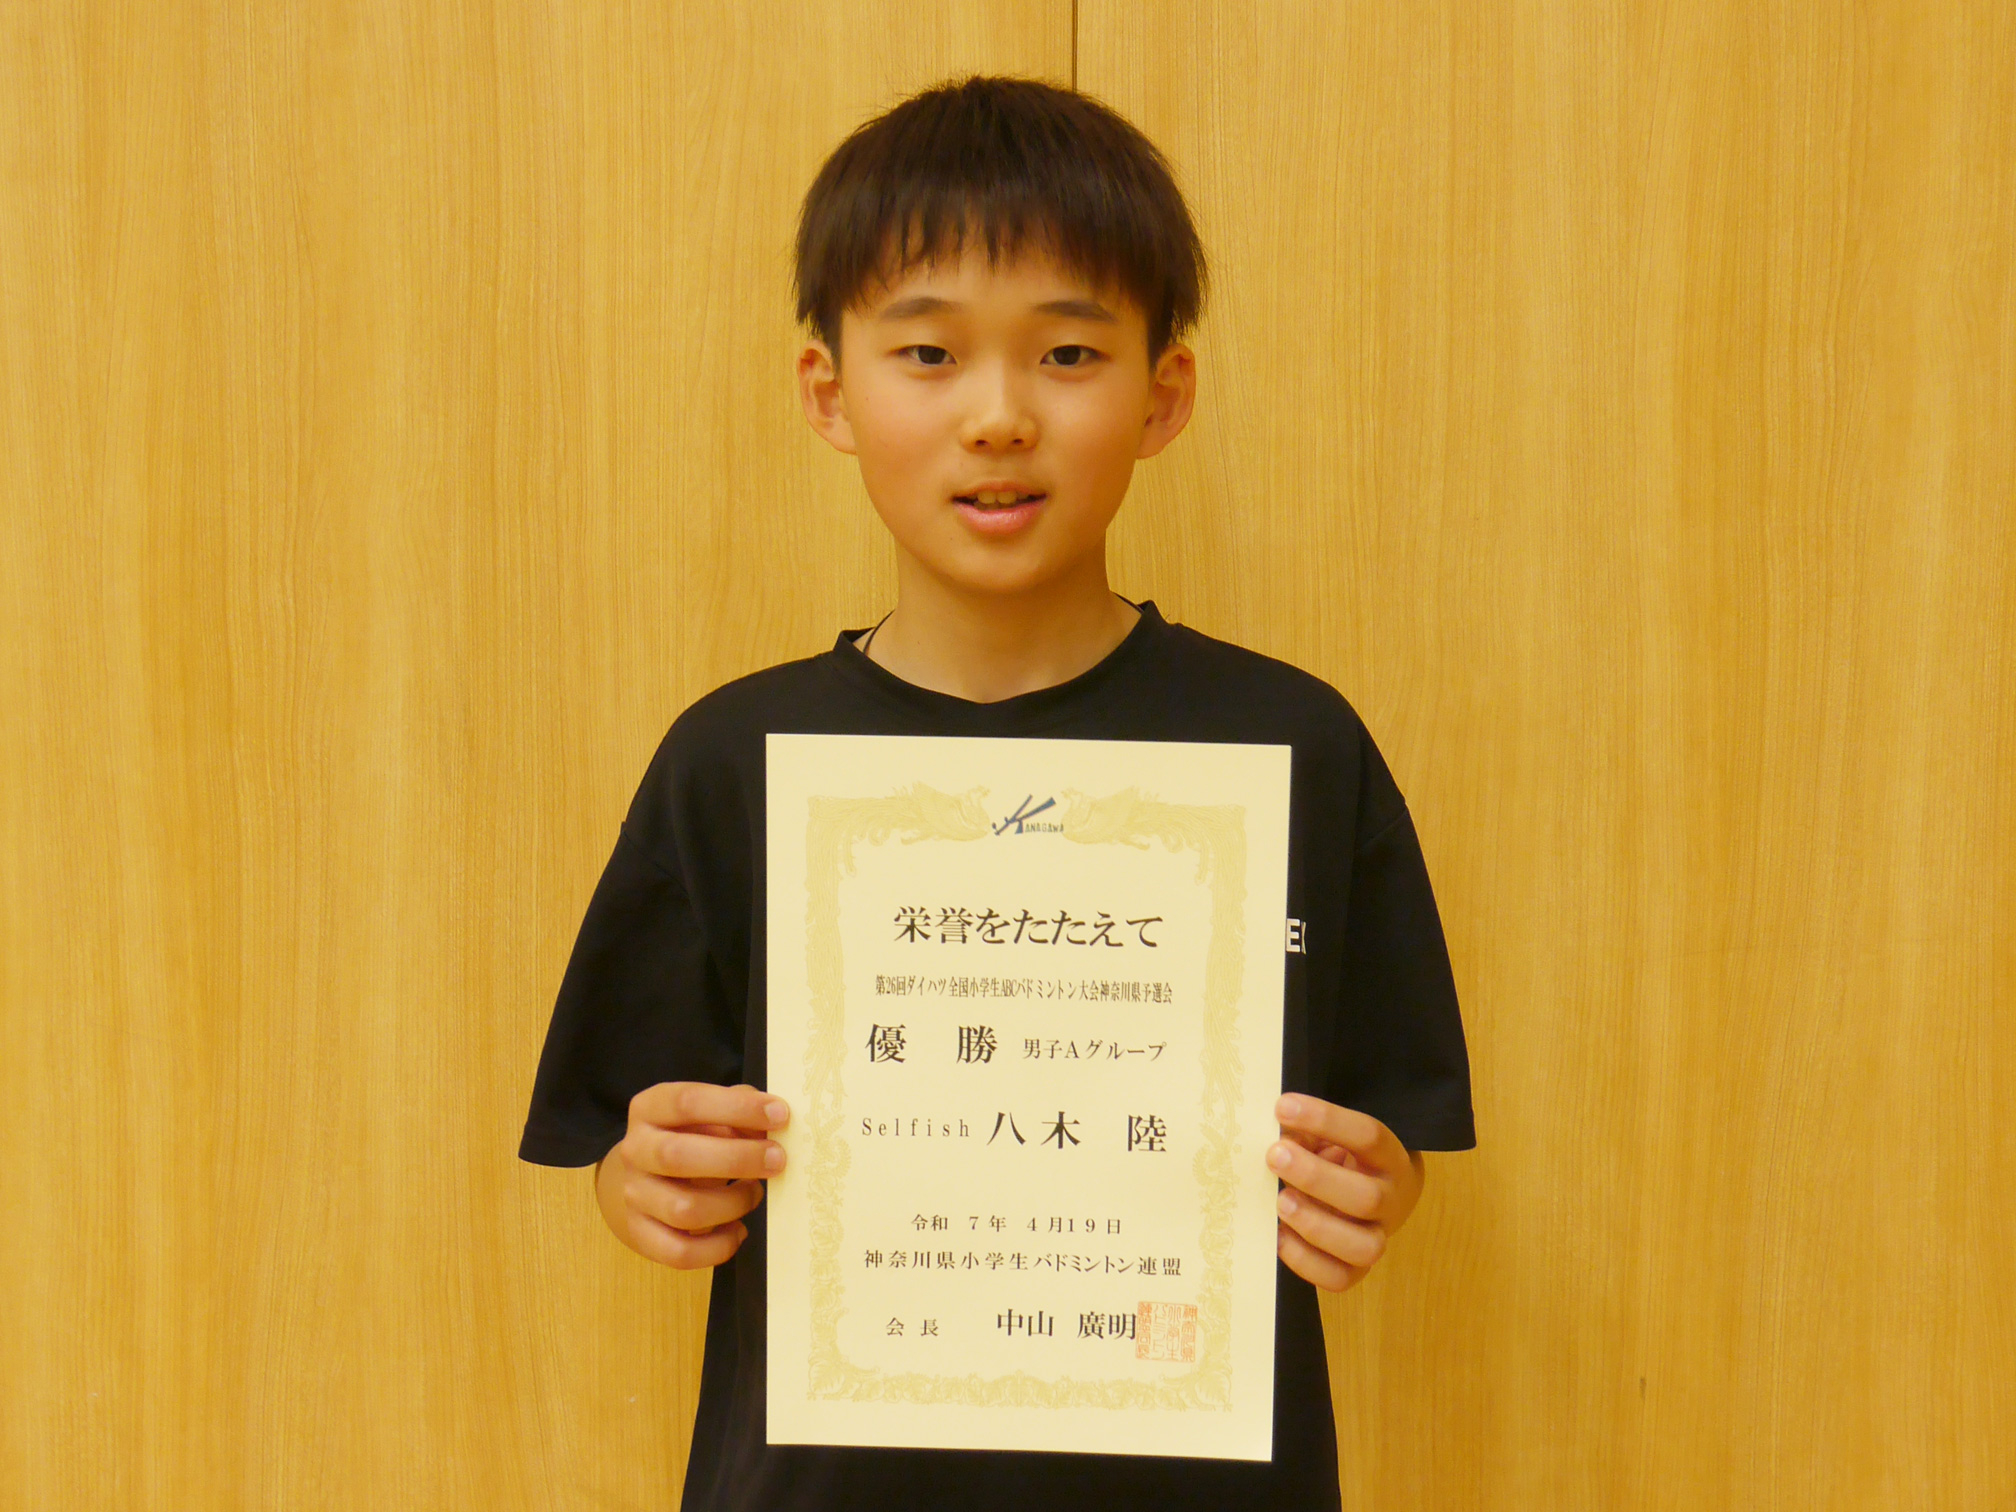 KANAGAWA
栄誉をたたえて
第26回ダイハツ全国小学生ABCバドミントン大会神奈川県予選会
優 勝 男子Aグループ
Selfish 八木 陸
令和 7年 4月19日
神奈川県小学生バドミントン連盟
会長 中山 廣明